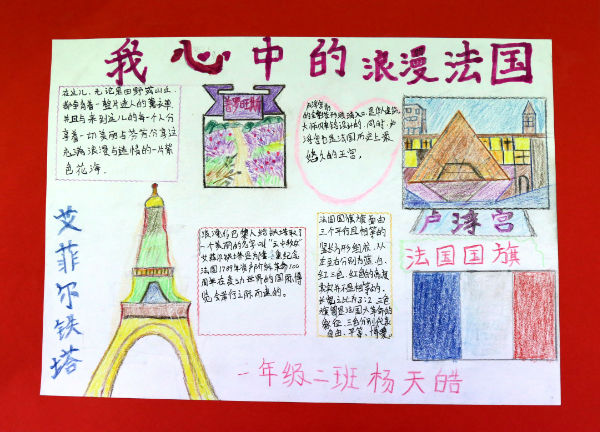 我心中的浪漫法国
在这儿,无论是田野或山丘
都孕育着一整片迷人的薰衣草
并且与来到这儿的每一个人分
享着一切美丽与芬芳,享这
充满浪漫与迷情的一片紫
色花海.
普罗旺斯
大师贝聿铭设计的,同时,卢
浮宫也是法国历史上最
悠久的王宫。
卢浮宫
法国国旗
艾菲尔铁塔
浪漫的巴黎人给铁塔取
一个美丽的名字叫“云中牧女”
艾菲尔铁塔是为了隆重纪念
法国1789年资产阶级革命100
周年在表示世界的国际博
览会举行之际而建的。
法国国旗旗面由
三个平行且相等的
竖长方形组成,从
左至右分别为蓝、白、
红三色,
长宽之比为3:2,三色
旗曾是法国大革命的
象征,三色分别代表
自由、平等、博爱
一年级二班 杨天皓